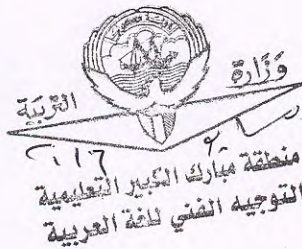 وزارة
التربية
منطقة مبارك الكبير التعليمية
التوجيه الفني للغة العربية